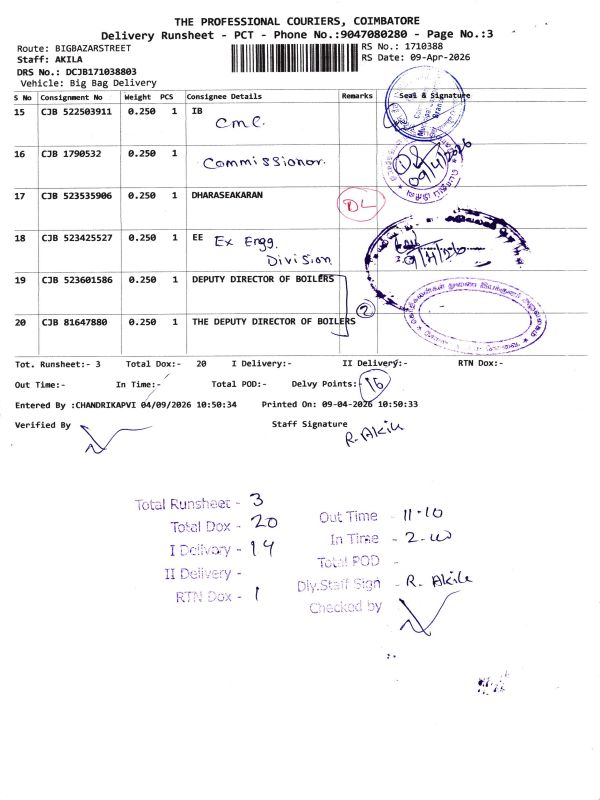 THE PROFESSIONAL COURIERS, COIMBATORE
Delivery Runsheet - PCT - Phone No.:9047080280 - Page No.:3
Route: BIGBAZARSTREET
RS No.: 1710388
Staff: AKILA
RS Date: 09-Apr-2026
DRS No.: DCJB171038803
Vehicle: Big Bag Delivery
S No Consignment No Weight PCS Consignee Details Remarks Seal & Signature
15 CJB 522503911 0.250 1 IB
CMC.
16 CJB 1790532 0.250 1
Commissionor.
09/4/2026
17 CJB 523535906 0.250 1 DHARASEAKARAN
DL
18 CJB 523425527 0.250 1 EE Ex Engg.
Division
9/4/26
19 CJB 523601586 0.250 1 DEPUTY DIRECTOR OF BOILERS
2
20 CJB 81647880 0.250 1 THE DEPUTY DIRECTOR OF BOILERS
Tot. Runsheet:- 3 Total Dox:- 20 I Delivery:- II Delivery:- RTN Dox:-
Out Time:- In Time:- Total POD:- Delvy Points:- 16
Entered By :CHANDRIKAPVI 04/09/2026 10:50:34 Printed On: 09-04-2026 10:50:33
Verified By Staff Signature
R. Akila
Total Runsheet - 3
Total Dox - 20
I Delivery - 19
II Delivery -
RTN Dox - 1
Out Time - 11-10
In Time - 2-00
Total POD -
Dly.Staff Sign - R. Akila
Checked by